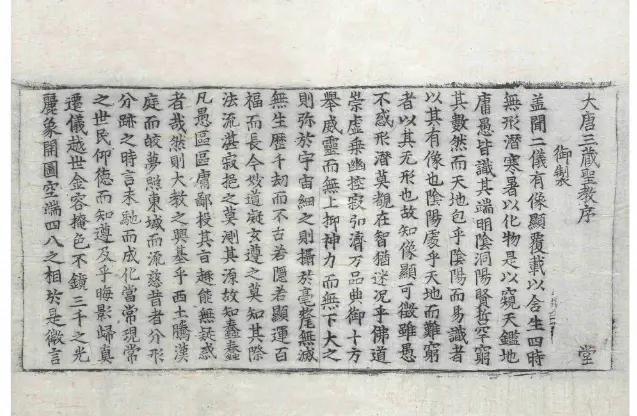 大唐三蔵聖教序 堂
御製
盖聞二儀有像顯覆載以含生四時
無形潜寒暑以化物是以窺天鑑地
庸愚皆識其端明陰洞陽賢哲罕窮
其數然而天地包乎陰陽而易識者
以其有像也陰陽處乎天地而難窮
者以其无形也故知像顯可徵雖愚
不惑形潜莫覩在智猶迷况乎佛道
崇虛乗幽控寂弘濟万品典御十方
舉威靈而無上抑神力而無下大之
則弥於宇宙細之則攝於毫氂無滅
無生歷千劫而不古若隱若顯運百
福而長今妙道凝玄遵之莫知其際
法流湛寂挹之莫測其源故知蠢蠢
凡愚區區庸鄙投其旨趣能無疑惑
者哉然則大教之興基乎西土騰漢
庭而皎夢照東域而流慈昔者分形
分跡之時言未馳而成化當常現常
之世民仰德而知遵及乎晦影歸真
遷儀越世金容掩色不鏡三千之光
麗象開圖空端四八之相於是微言